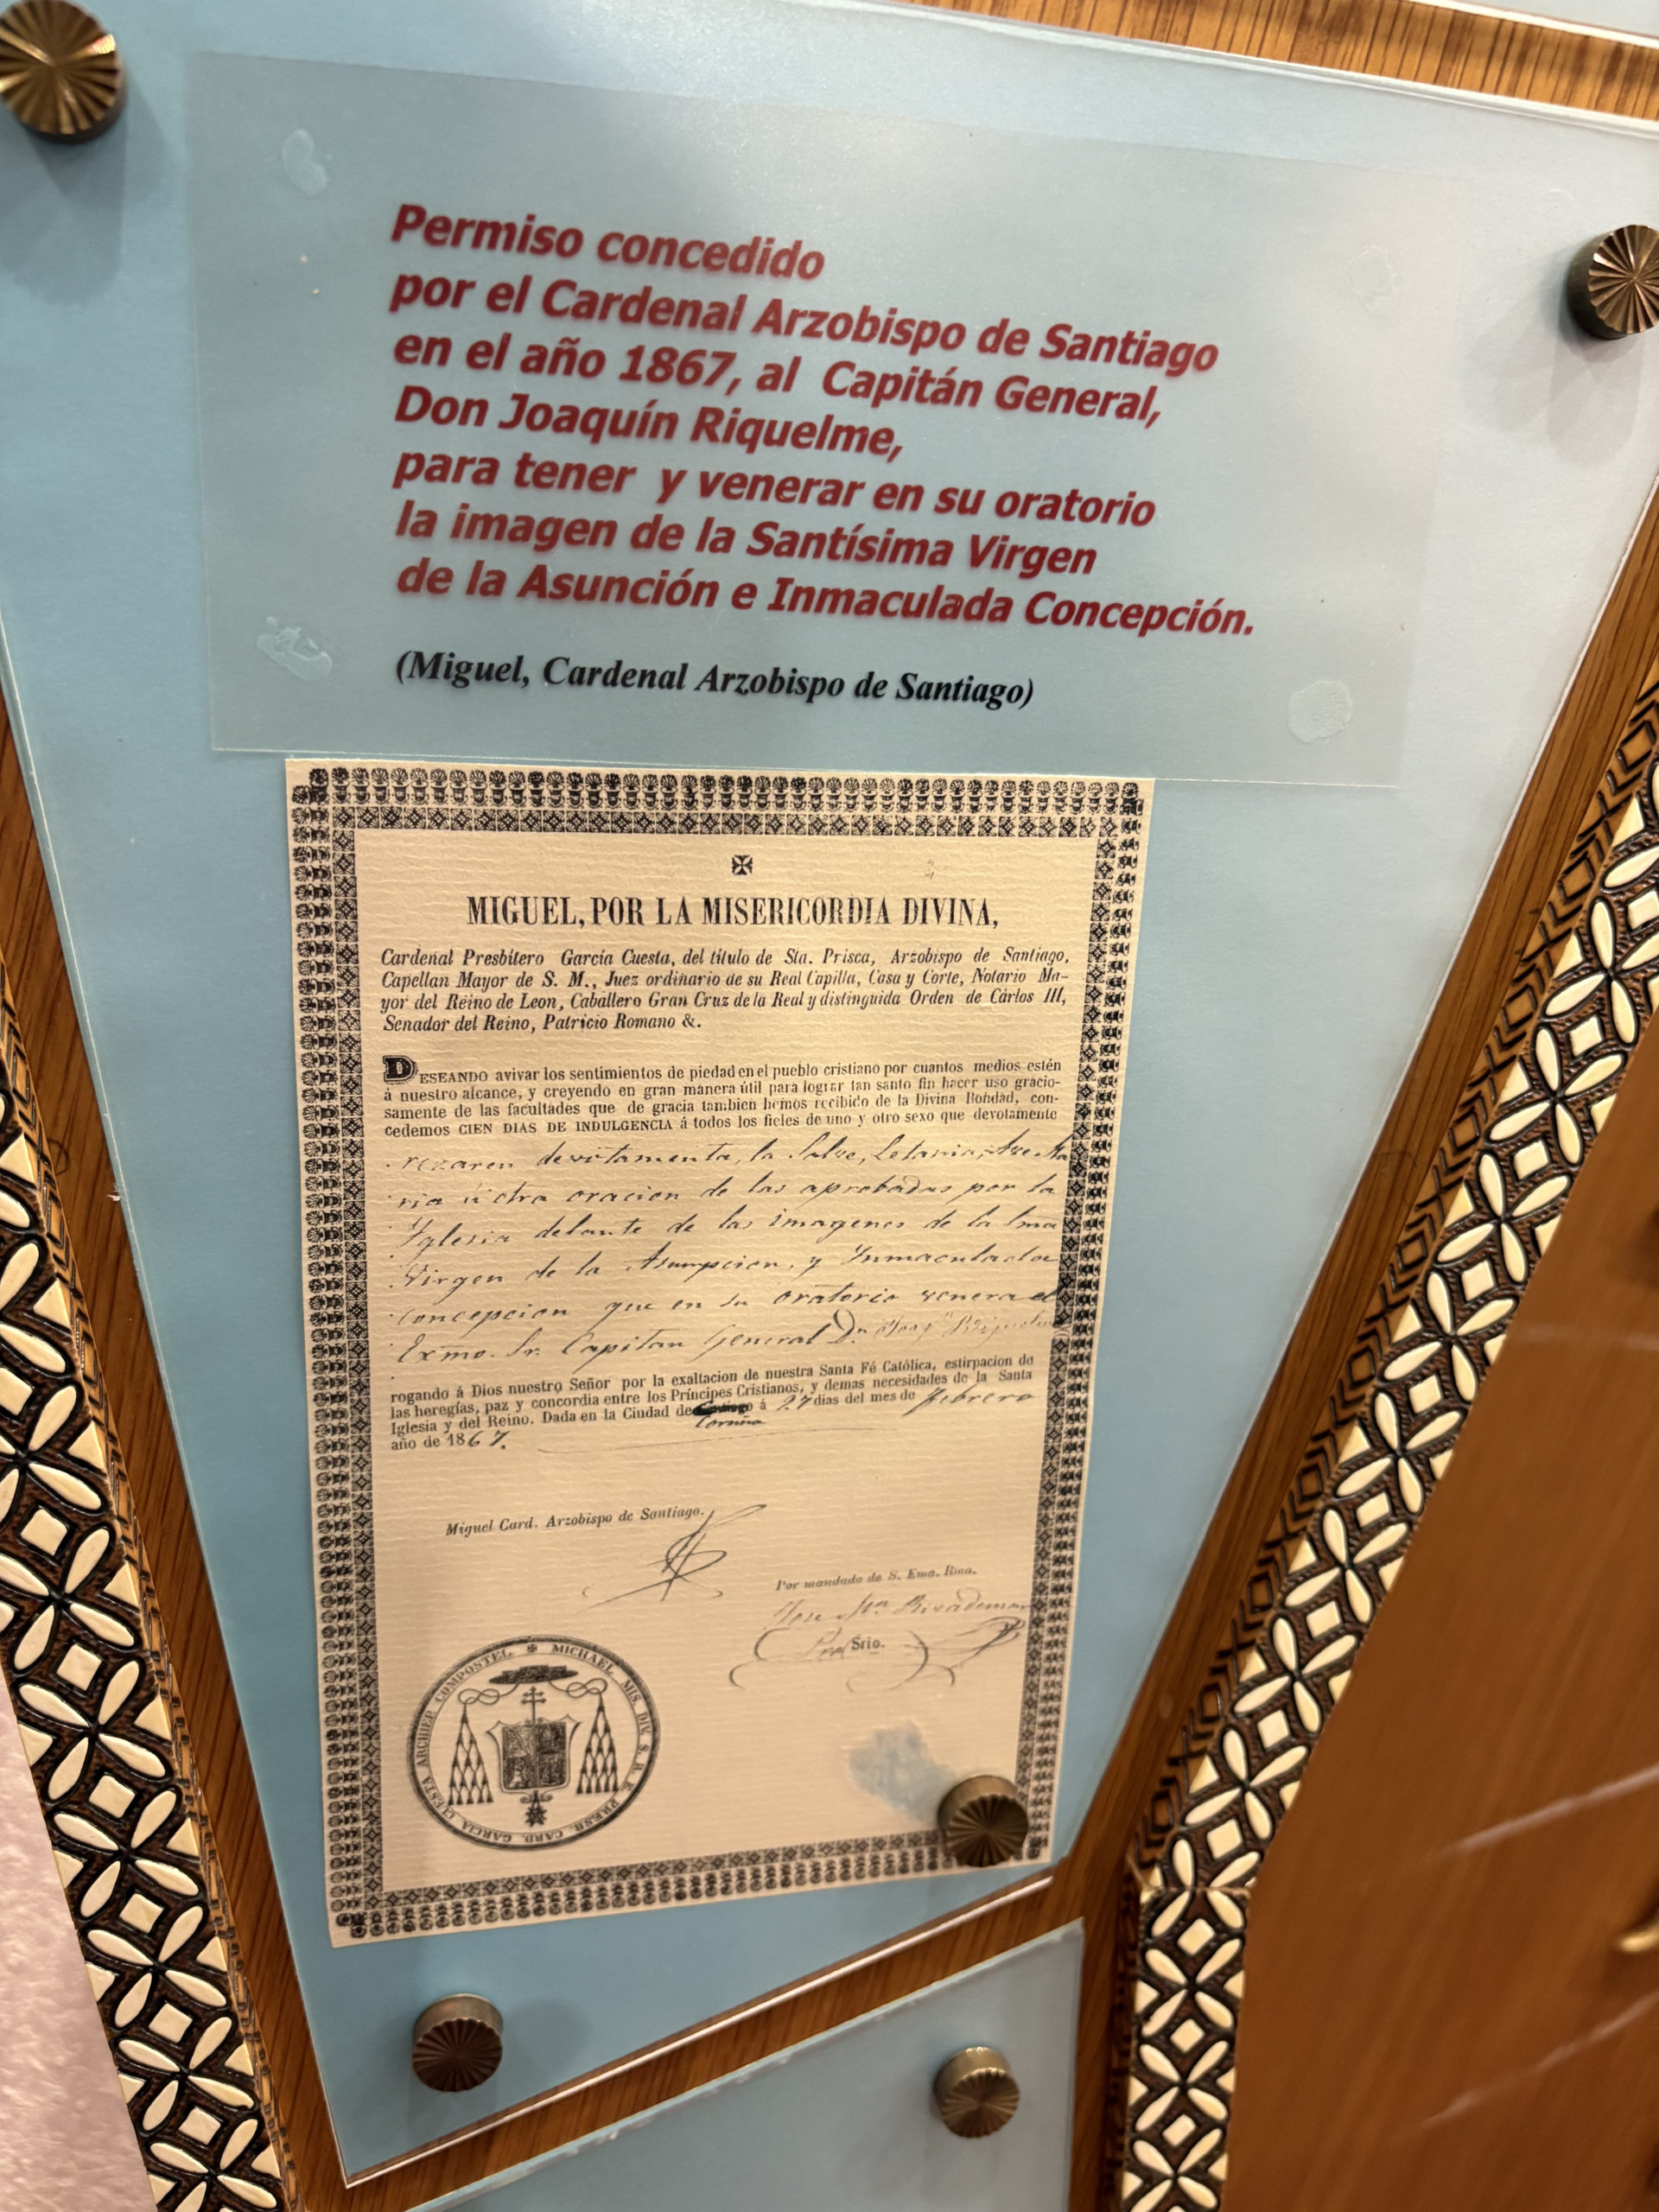 Permiso concedido
por el Cardenal Arzobispo de Santiago
en el año 1867, al Capitán General,
Don Joaquín Riquelme,
para tener y venerar en su oratorio
la imagen de la Santísima Virgen
de la Asunción e Inmaculada Concepción.
(Miguel, Cardenal Arzobispo de Santiago)
MIGUEL, POR LA MISERICORDIA DIVINA,
Cardenal Presbítero García Cuesta, del título de Sta. Prisca, Arzobispo de Santiago,
Capellan Mayor de S. M., Juez ordinario de su Real Capilla, Casa y Corte, Notario Ma-
yor del Reino de Leon, Caballero Gran Cruz de la Real y distinguida Orden de Cárlos III,
Senador del Reino, Patricio Romano &.
DESEANDO avivar los sentimientos de piedad en el pueblo cristiano por cuantos medios estén
á nuestro alcance, y creyendo en gran manera útil para lograr tan santo fin hacer uso gracio-
samente de las facultades que de gracia tambien hemos recibido de la Divina Bondad, con-
cedemos CIEN DIAS DE INDULGENCIA á todos los fieles de uno y otro sexo que devotamente
rezaren devotamente, la Salve, Letania, Ave Ma
ria ú otra oracion de las aprobadas por la
Yglesia delante de las imagenes de la Sma
Virgen de la Asumpcion, y Ynmaculada
Concepcion que en su oratorio venera el
Exmo. Sr. Capitan General Dn Joaqn Riquelme
rogando á Dios nuestro Señor por la exaltacion de nuestra Santa Fé Católica, estirpacion de
las heregías, paz y concordia entre los Príncipes Cristianos, y demas necesidades de la Santa
Iglesia y del Reino. Dada en la Ciudad de Santiago á 27 dias del mes de febrero
Coruña
año de 1867.
Miguel Card. Arzobispo de Santiago.
Por mandado de S. Ema. Rma.
Jose Ma
Srio.
MICHAEL MIS. DIV. S. R. E. PRESB. CARD. GARCIA CUESTA ARCHIEP. COMPOSTEL.